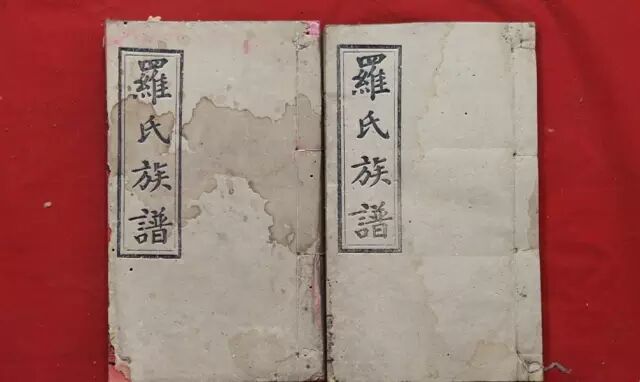 羅氏族譜
羅氏族譜